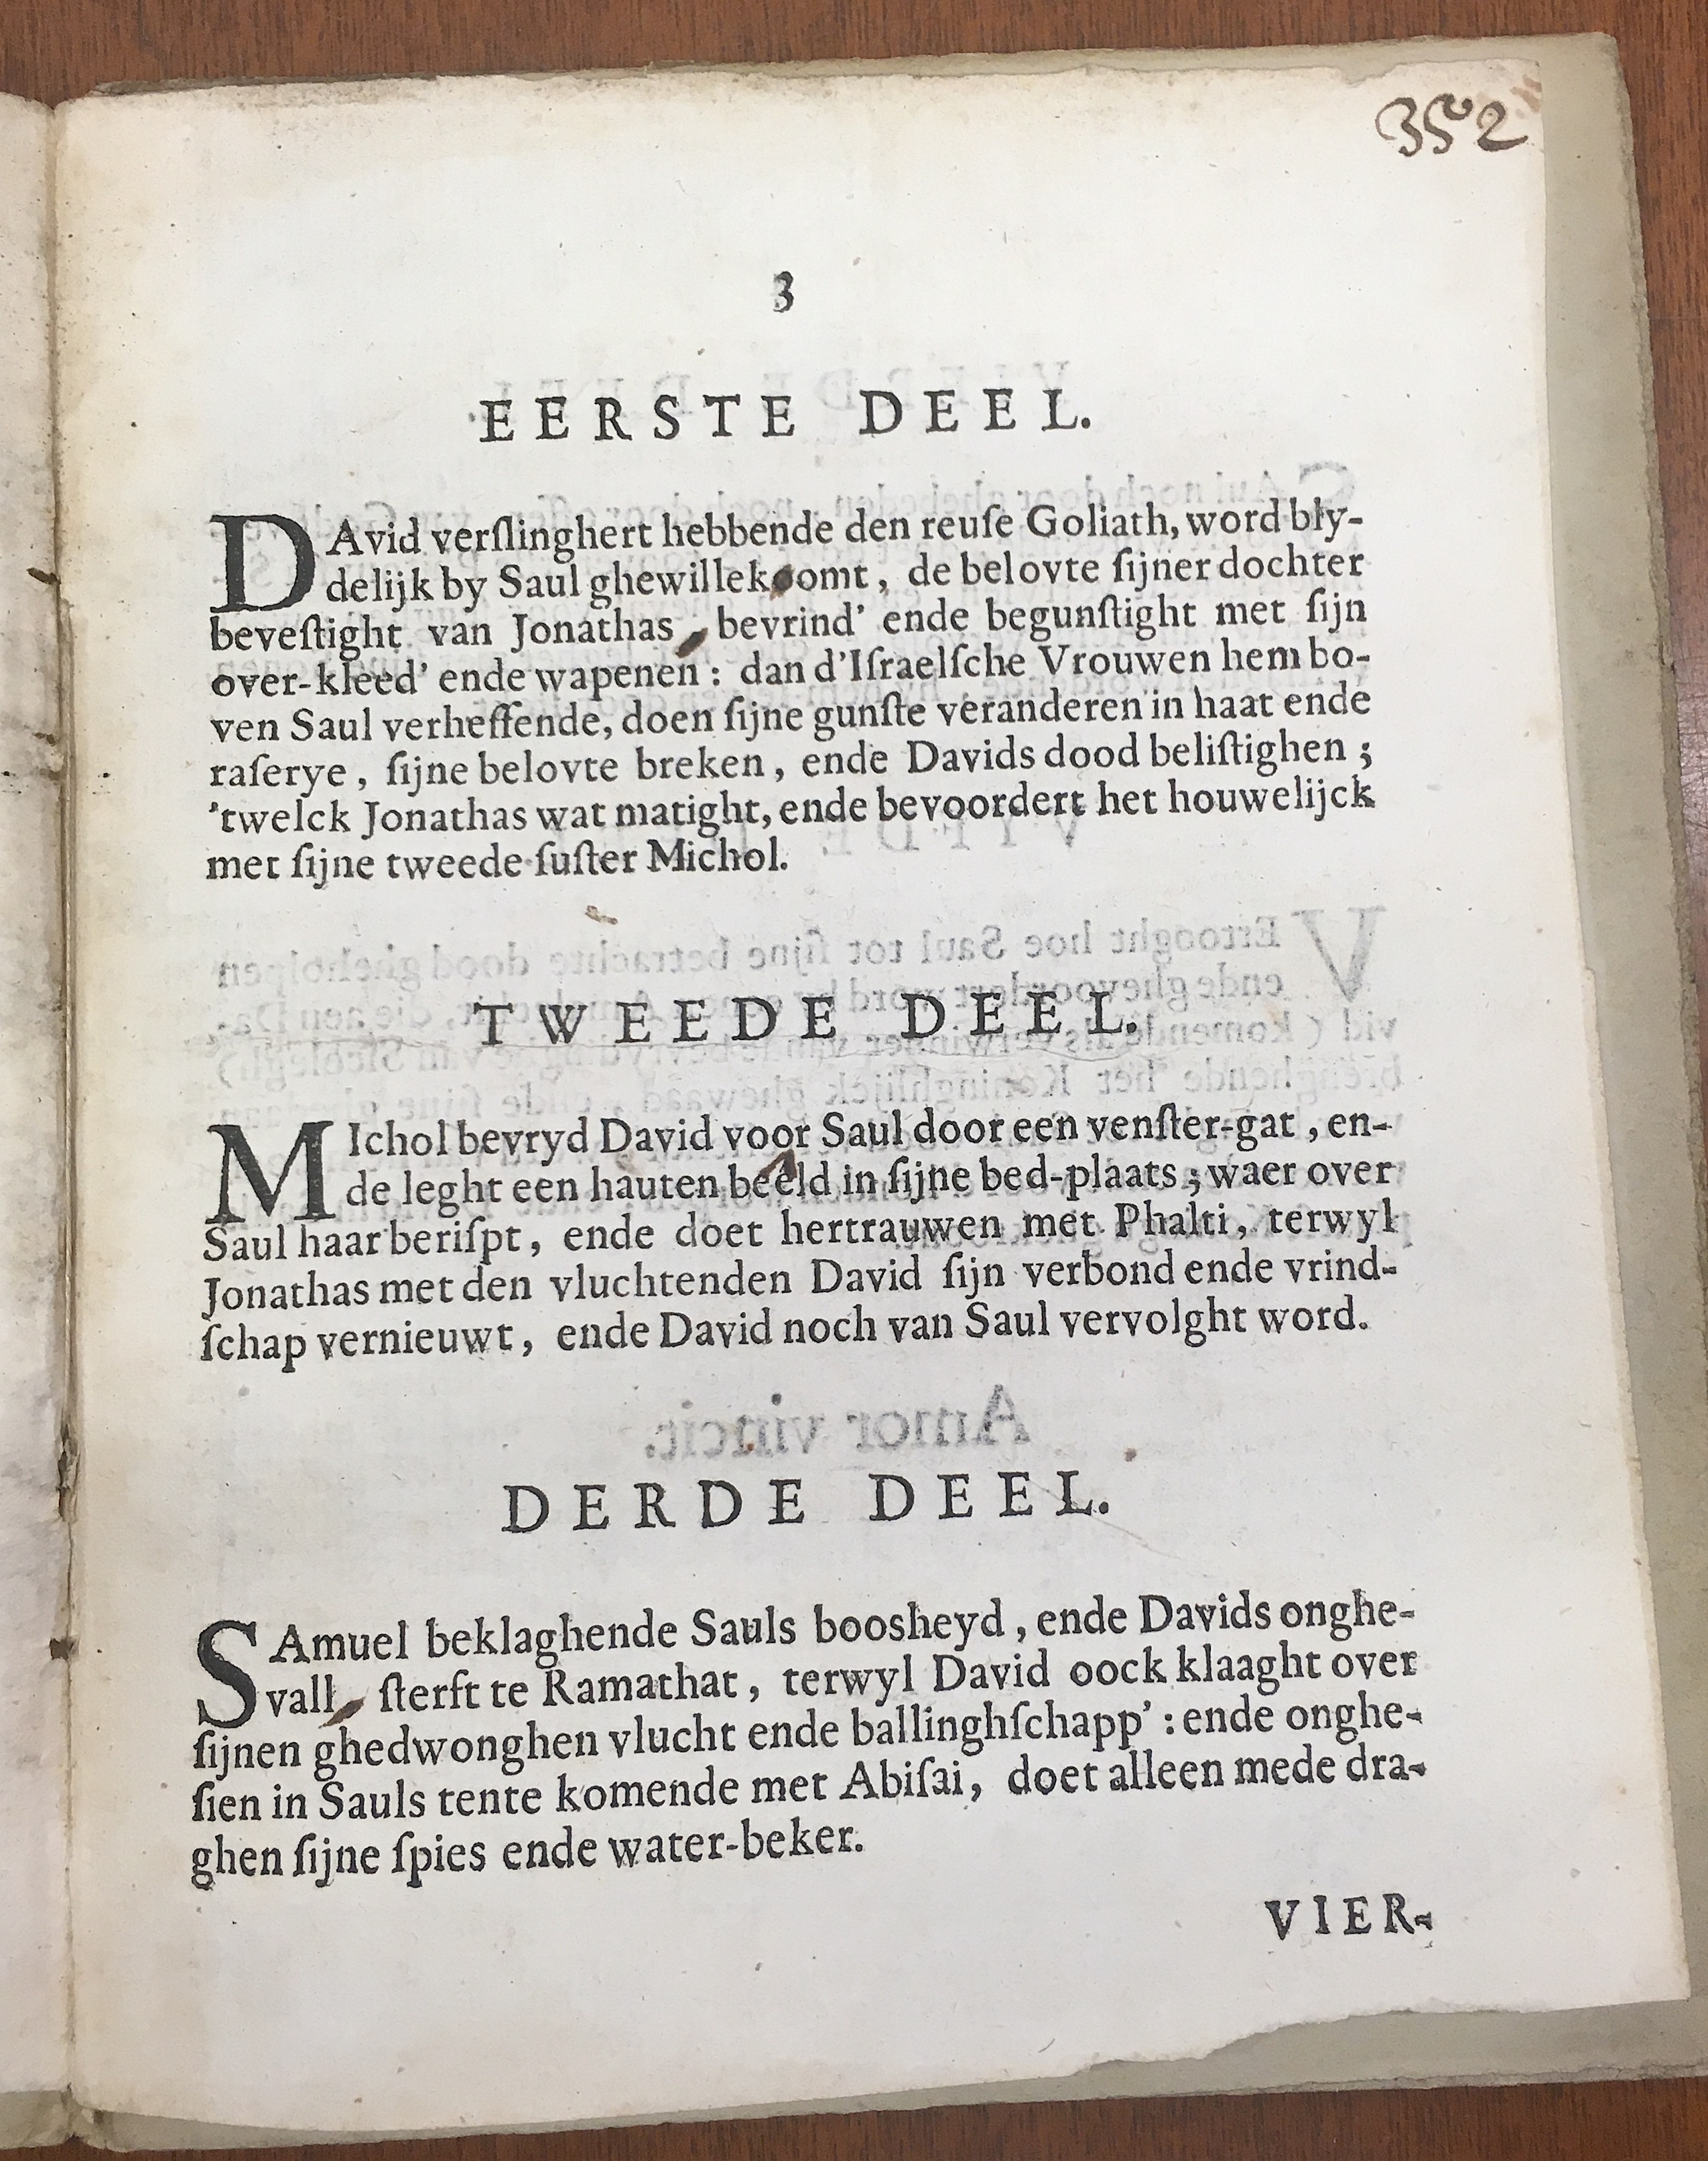 352
3
EERSTE DEEL.
DAvid verſlinghert hebbende den reuſe Goliath, word bly-
delijk by Saul ghewillekoomt, de belovte ſijner dochter
beveſtight van Jonathas, bevrind' ende begunſtight met ſijn
over-kleed' ende wapenen: dan d'Iſraelſche Vrouwen hem bo-
ven Saul verheffende, doen ſijne gunſte veranderen in haat ende
raſerye, ſijne belovte breken, ende Davids dood beliſtighen;
'twelck Jonathas wat matight, ende bevoordert het houwelijck
met ſijne tweede ſuſter Michol.
TWEEDE DEEL.
MIchol bevryd David voor Saul door een venſter-gat, en-
de leght een hauten beeld in ſijne bed-plaats; waer over
Saul haar beriſpt, ende doet hertrauwen met Phalti, terwyl
Jonathas met den vluchtenden David ſijn verbond ende vrind-
ſchap vernieuwt, ende David noch van Saul vervolght word.
DERDE DEEL.
SAmuel beklaghende Sauls boosheyd, ende Davids onghe-
vall, ſterft te Ramathat, terwyl David oock klaaght over
ſijnen ghedwonghen vlucht ende ballinghſchapp': ende onghe-
ſien in Sauls tente komende met Abiſai, doet alleen mede dra-
ghen ſijne ſpies ende water-beker.
VIER-